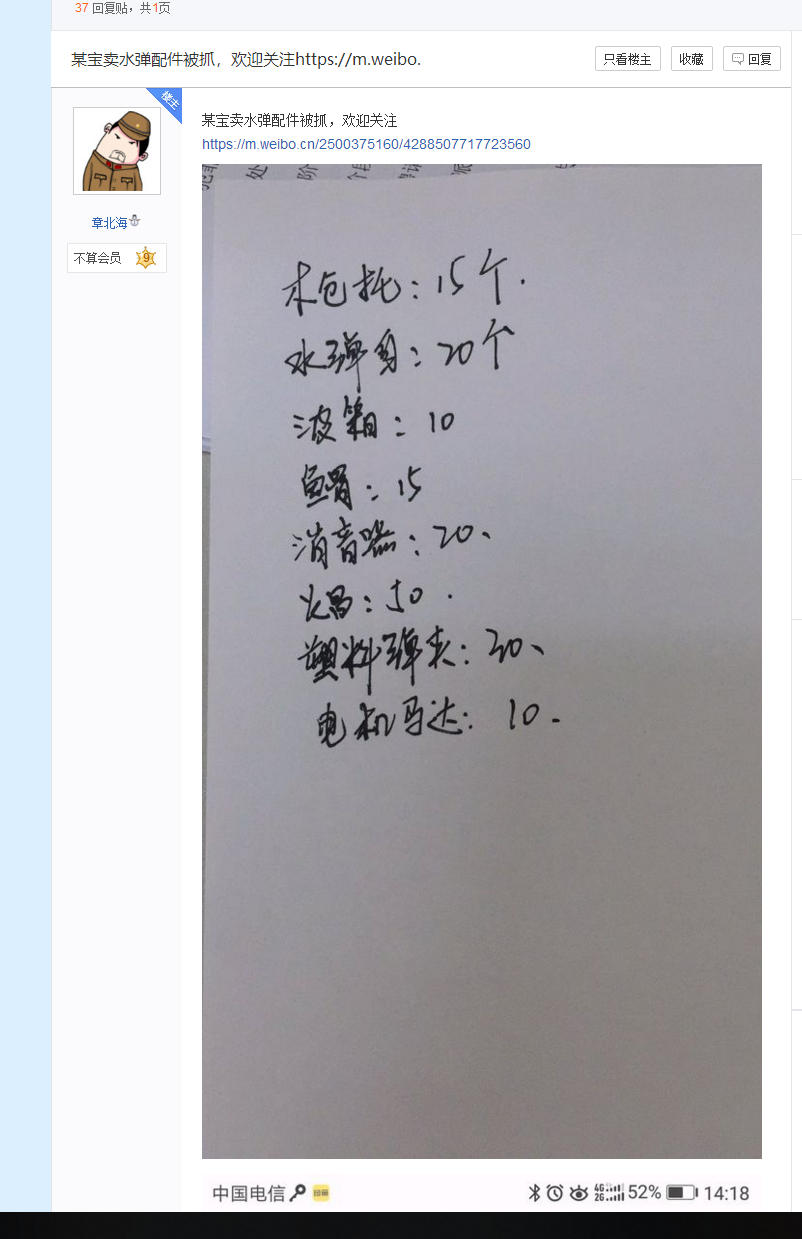 37 回复贴，共1页
某宝卖水弹配件被抓，欢迎关注https://m.weibo.
只看楼主
收藏
回复
楼主
章北海
不算会员 9
某宝卖水弹配件被抓，欢迎关注
https://m.weibo.cn/2500375160/4288507717723560
处 阶
木包托：15个.
水弹身：20个
波箱：10
鱼骨：15
消音器：20、
火帽：50.
塑料弹夹：30、
电机马达：10.
中国电信
4G 2G 52% 14:18